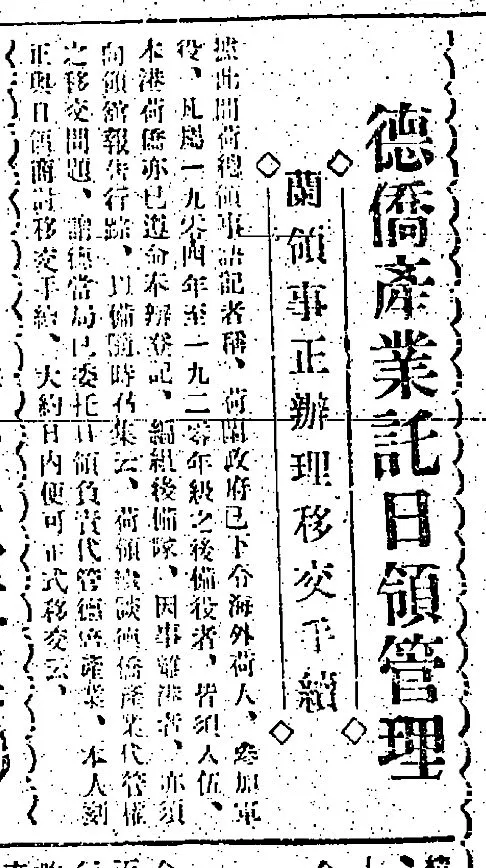 德僑產業託日領管理
蘭領事正辦理移交手續
據此間荷總領事語記者稱、荷蘭政府已下令海外荷人、參加軍
役、凡屬一九零四年至一九二零年級之後備役者、皆須入伍、
本港荷僑亦已遵命奉辦登記、編組後備隊、因事離港者、亦須
向領館報告行踪、以備隨時召集云、荷領繼談德僑產業代管權
之移交問題、謂德當局已委托日領負責代管德僑產業、本人刻
正與日領商討移交手續、大約日內便可正式移交云、